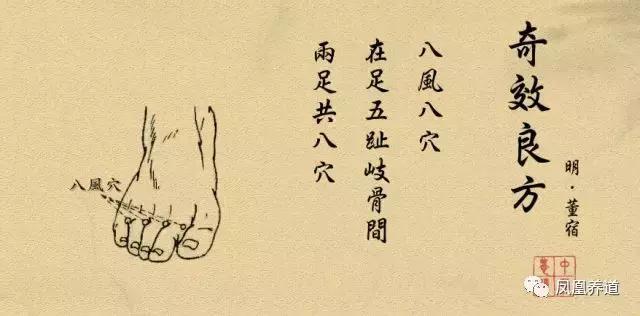 奇效良方
明·董宿
八風八穴
在足五趾歧骨間
兩足共八穴
八風穴
凤凰养道